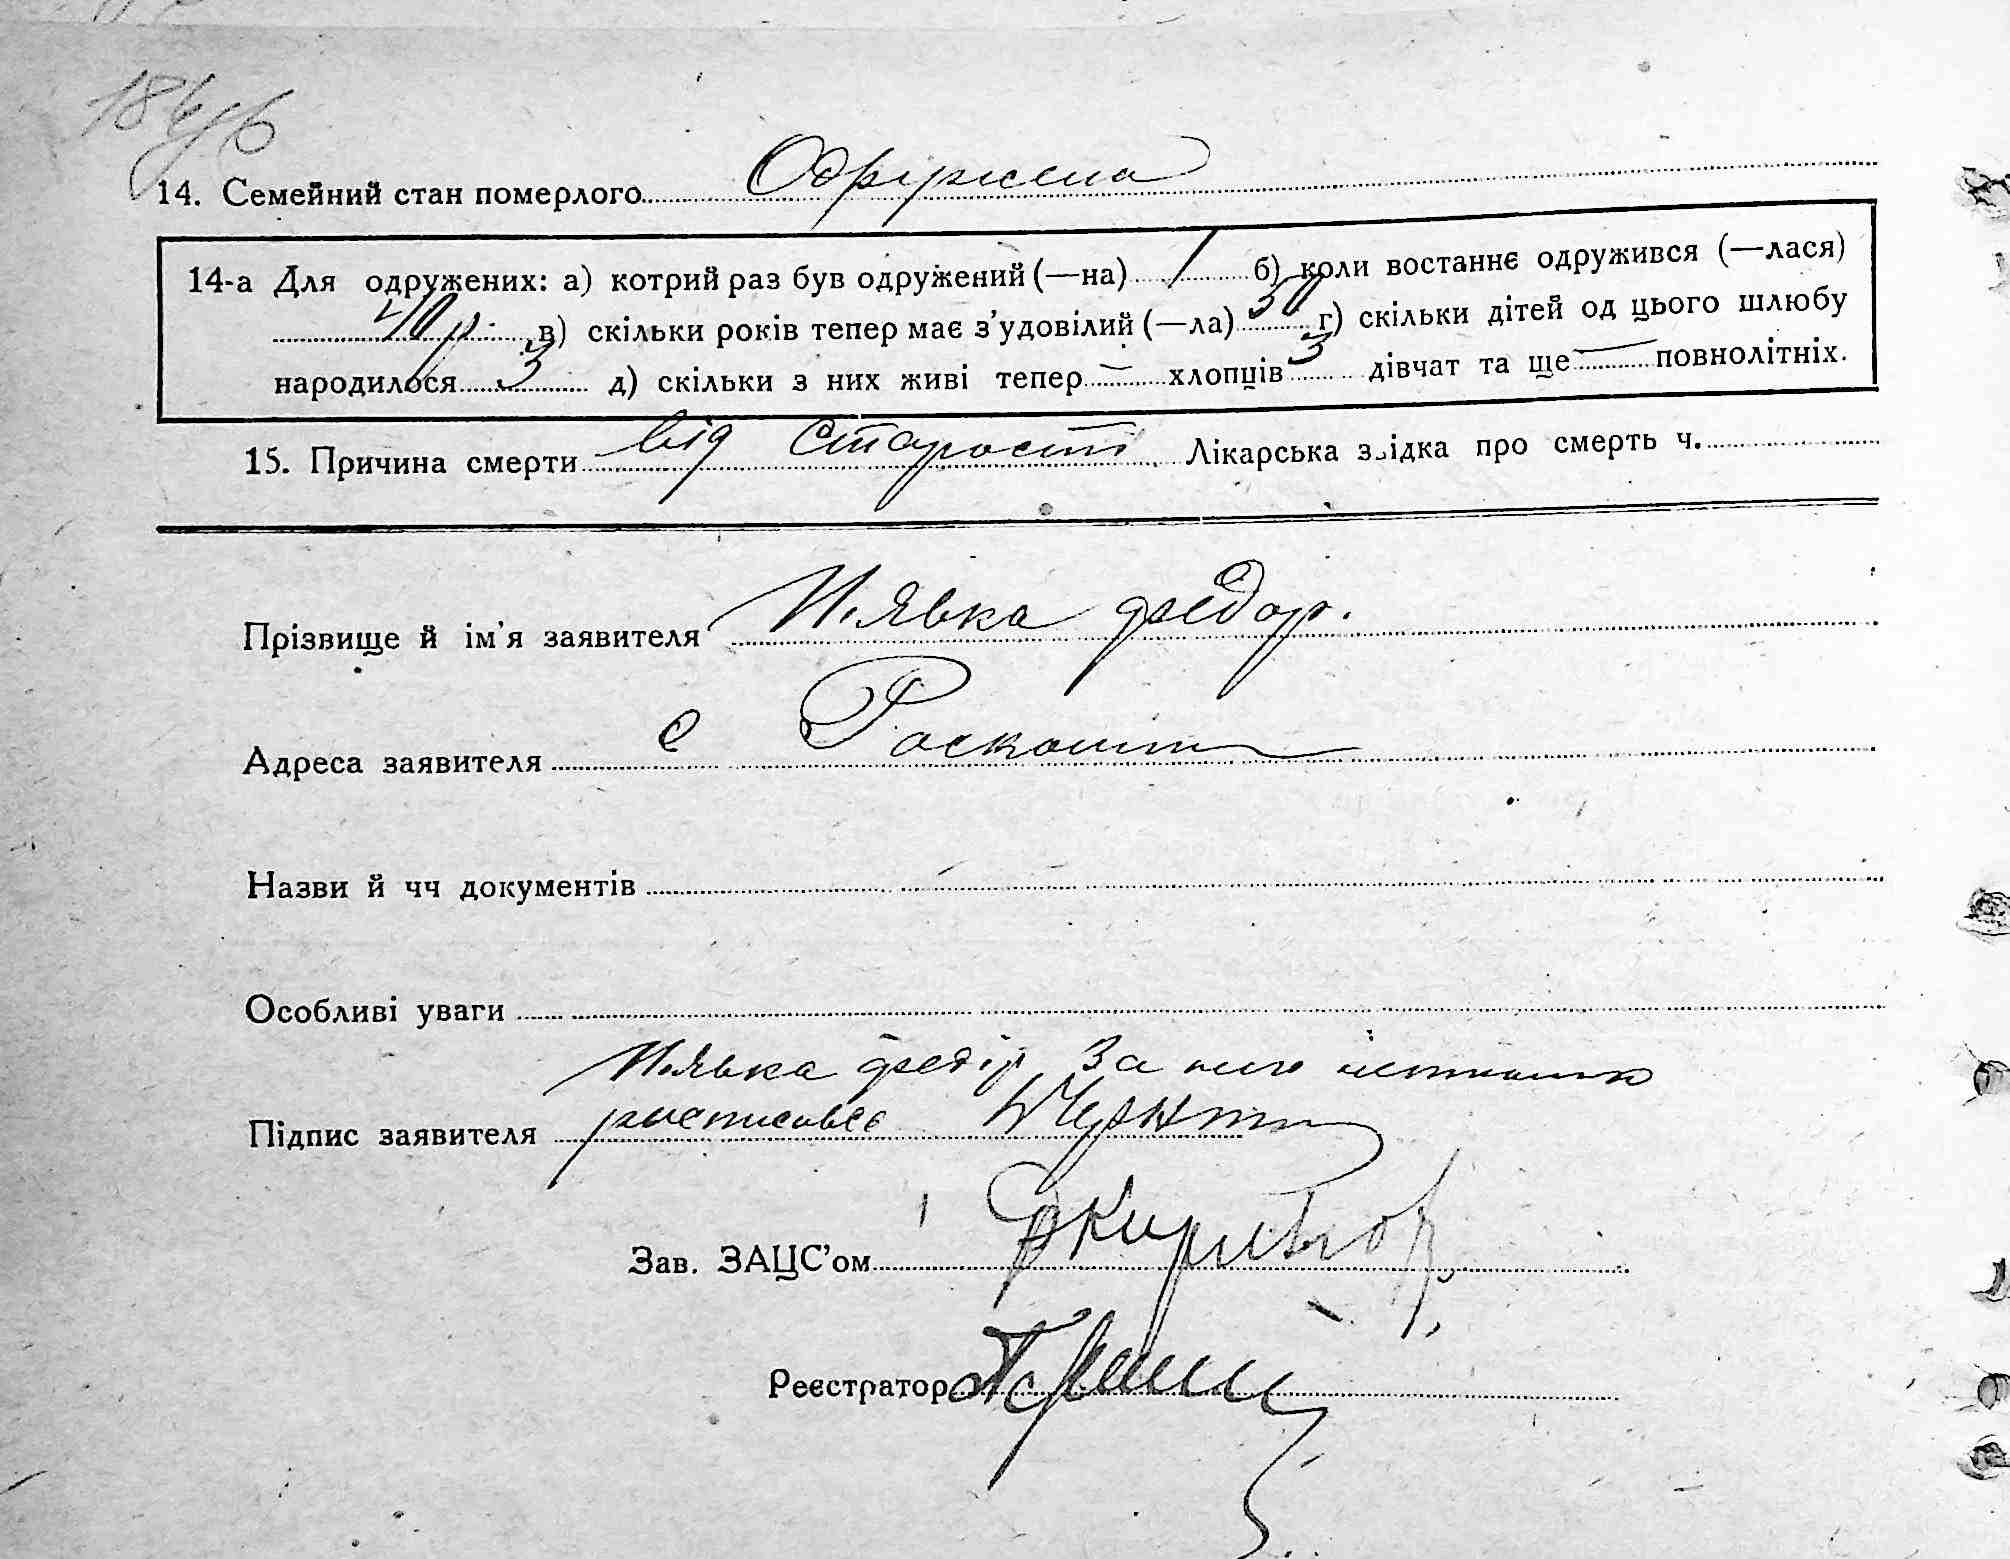 14. Семейний стан померлого Одружена
14-а Для одружених: а) котрий раз був одружений (—на) 1 б) коли востаннє одружився (—лася)
40 р. в) скільки років тепер має з’удовілий (—ла) 50 г) скільки дітей од цього шлюбу
народилося 3 д) скільки з них живі тепер — хлопців 3 дівчат та ще — повнолітніх.
15. Причина смерти від старости Лікарська звідка про смерть ч.
Прізвище й ім’я заявителя Пявка Федор.
Адреса заявителя с Роскошн
Назви й чч документів
Особливі уваги
Пявка Федір За него
Підпис заявителя росписався
Зав. ЗАЦС’ом
Реєстратор